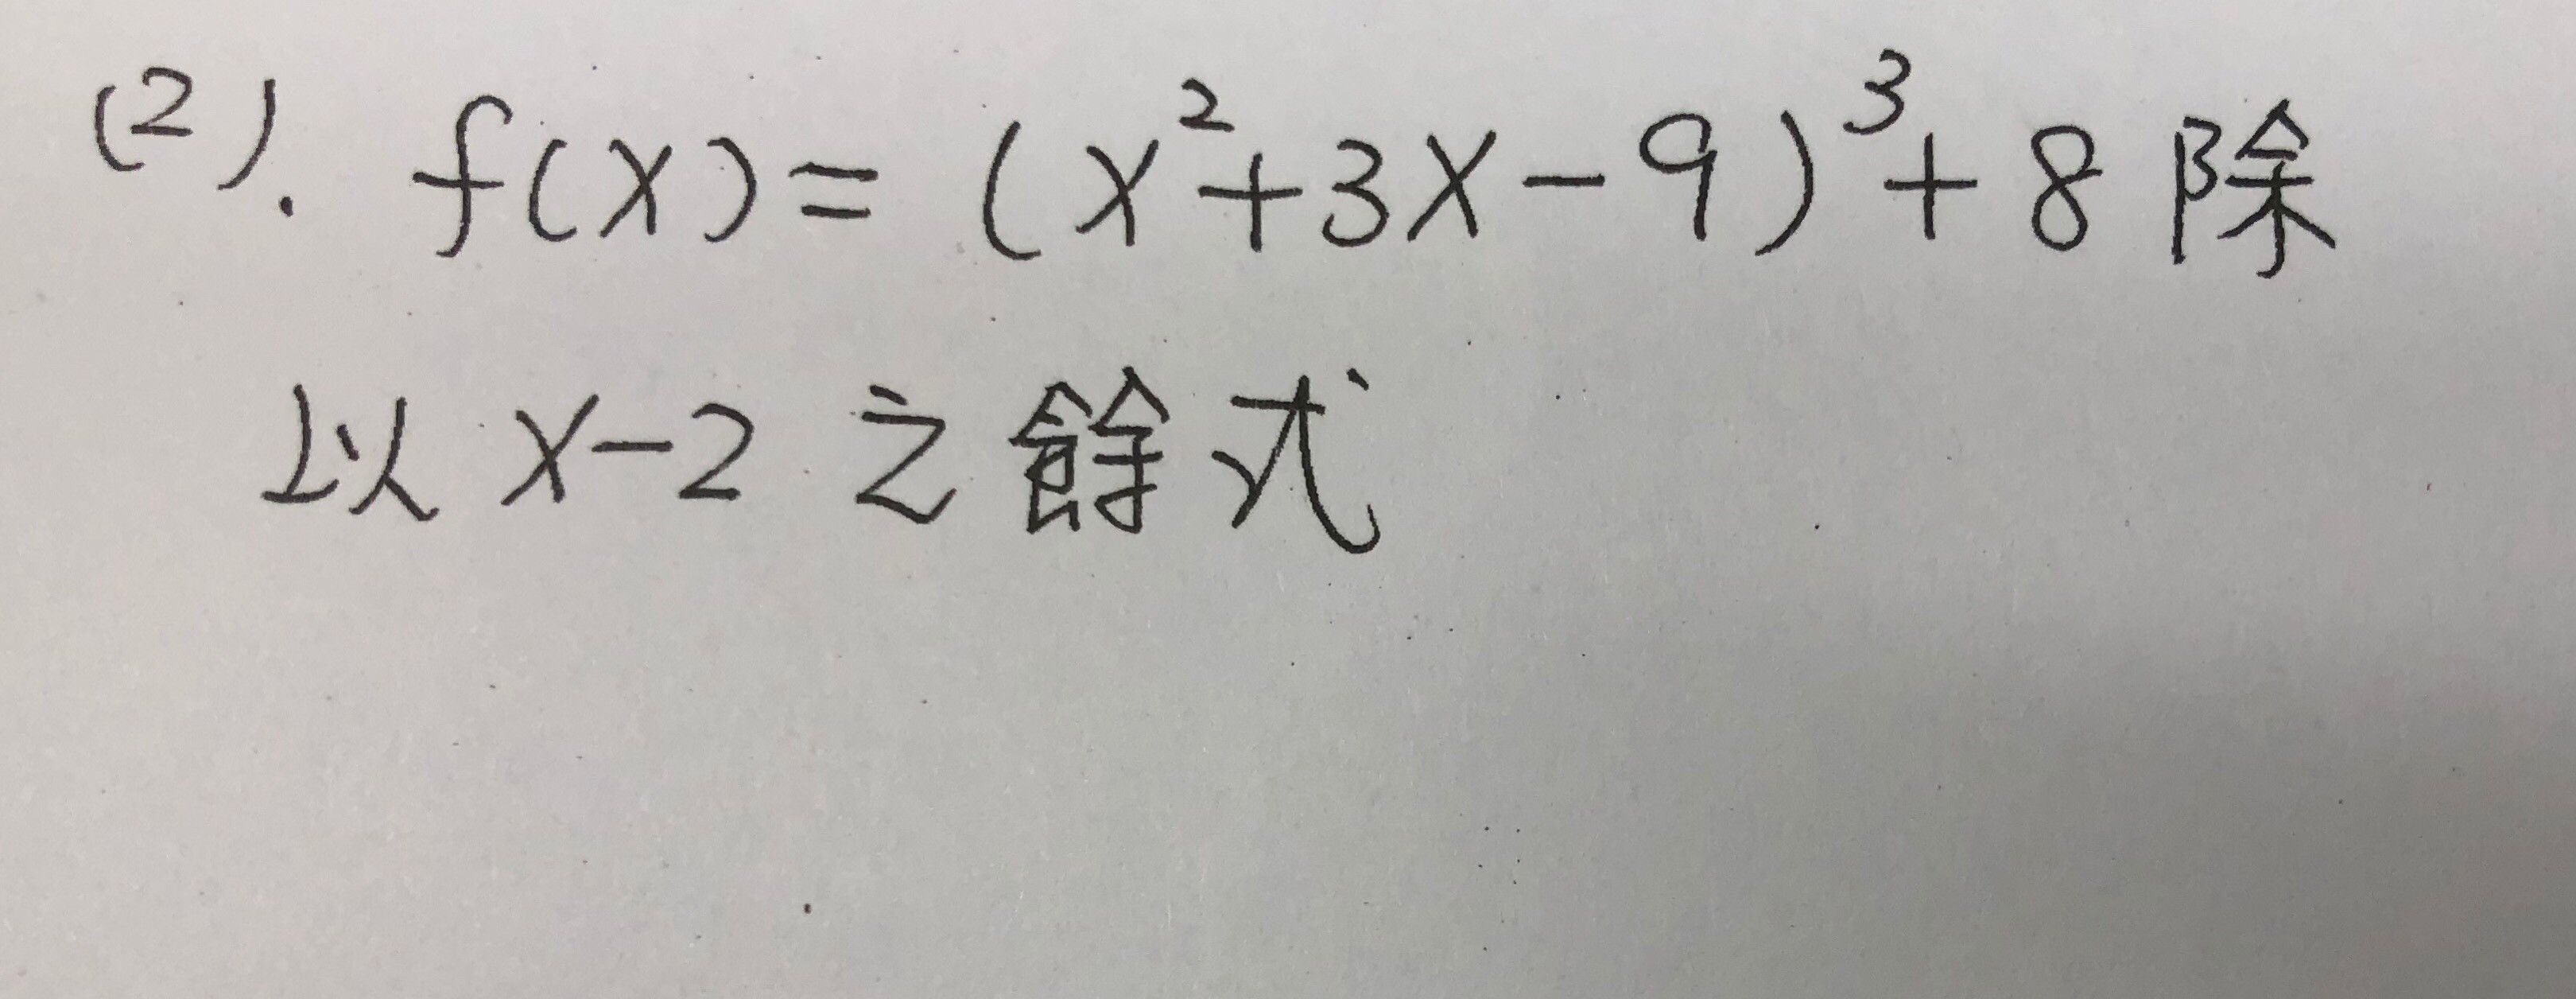 (2). f(x) = (x²+3x-9)³+8 除
以 x-2 之餘式